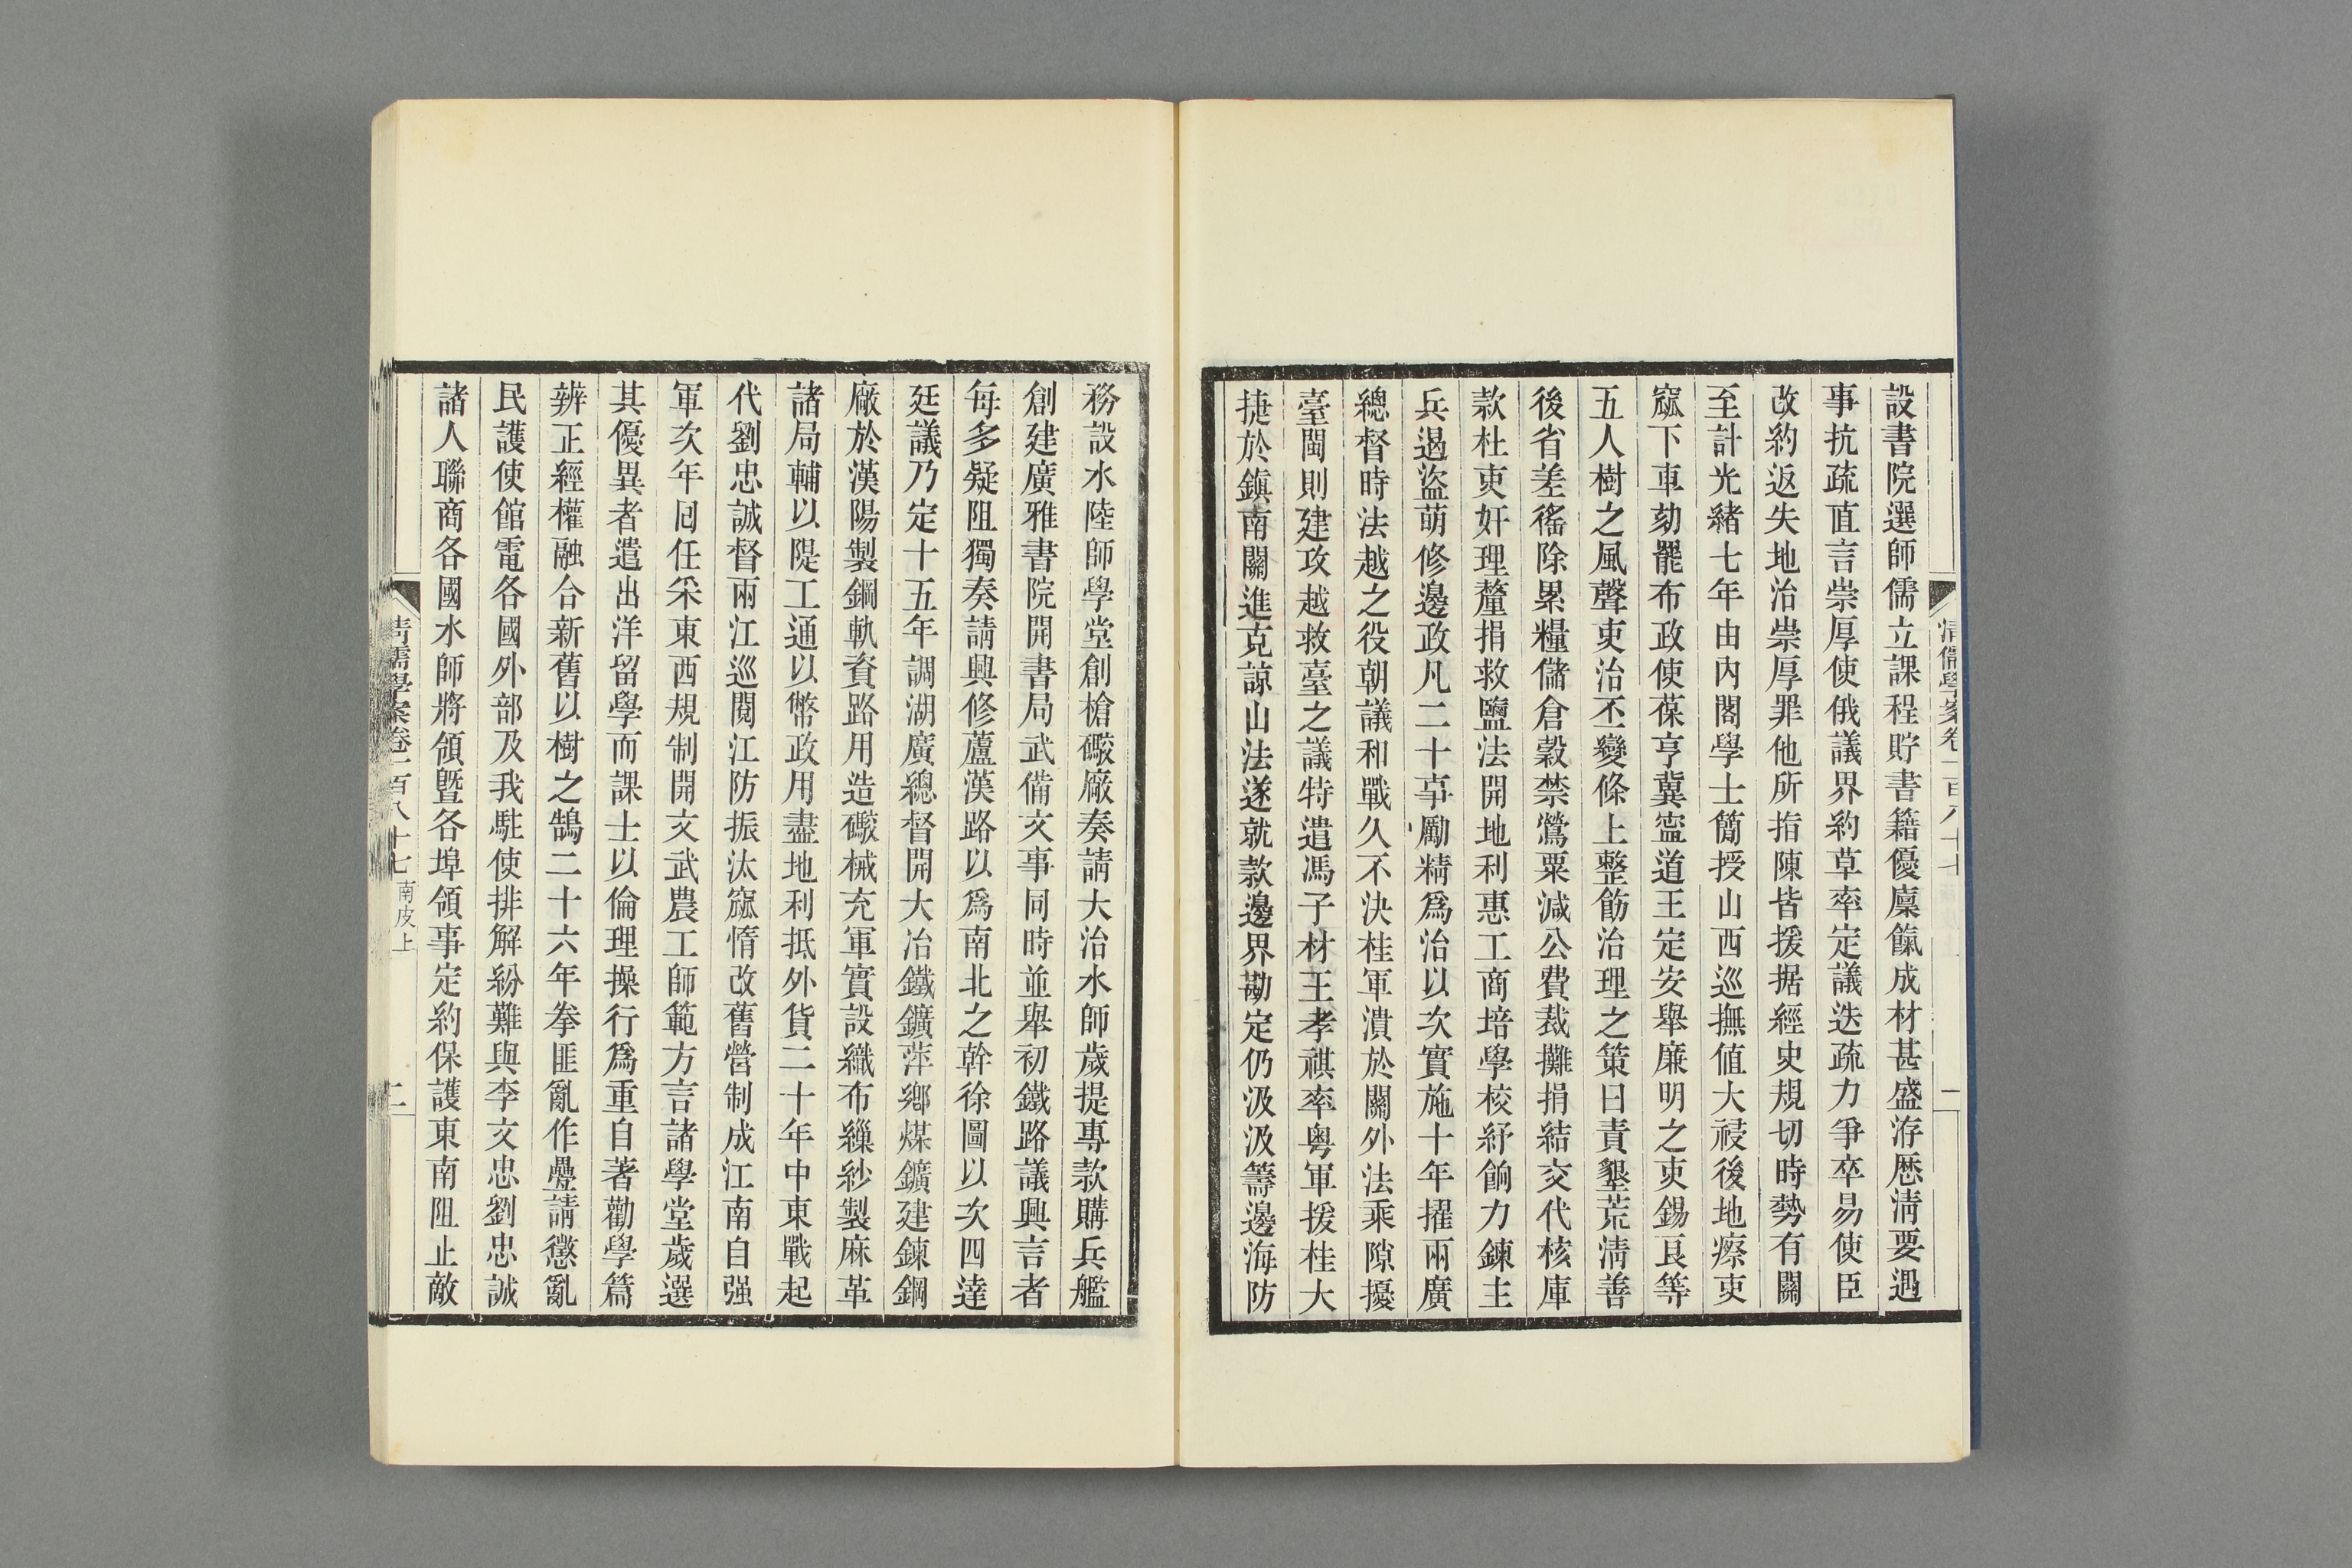 清儒學案卷一百八十七
一
設書院選師儒立課程貯書籍優廩餼成材甚盛洊厯淸要遇
事抗疏直言崇厚使俄議界約草率定議迭疏力爭卒易使臣
改約返失地治崇厚罪他所指陳皆援据經史規切時勢有關
至計光緒七年由內閣學士簡授山西巡撫値大祲後地瘵吏
窳下車劾罷布政使葆亨冀寍道王定安舉廉明之吏錫良等
五人樹之風聲吏治丕變條上整飭治理之策曰責墾荒淸善
後省差徭除累糧儲倉穀禁鶯粟減公費裁攤捐結交代核庫
款杜吏奸理釐捐救鹽法開地利惠工商培學校紓餉力鍊主
兵遏盜萌修邊政凡二十事勵精爲治以次實施十年擢兩廣
總督時法越之役朝議和戰久不決桂軍潰於關外法乘隙擾
臺閩則建攻越救臺之議特遣馮子材王孝祺率粵軍援桂大
捷於鎭南關進克諒山法遂就款邊界勘定仍汲汲籌邊海防
務設水陸師學堂創槍礮廠奏請大治水師歲提專款購兵艦
創建廣雅書院開書局武備文事同時並舉初鐵路議興言者
每多疑阻獨奏請興修蘆漢路以爲南北之幹徐圖以次四達
廷議乃定十五年調湖廣總督開大冶鐵鑛萍鄉煤鑛建鍊鋼
廠於漢陽製鋼軌資路用造礮械充軍實設織布繅紗製麻革
諸局輔以隄工通以幣政用盡地利抵外貨二十年中東戰起
代劉忠誠督兩江巡閱江防振汰窳惰改舊營制成江南自强
軍次年回任采東西規制開文武農工師範方言諸學堂歲選
其優異者遣出洋留學而課士以倫理操行爲重自著勸學篇
辨正經權融合新舊以樹之鵠二十六年拳匪亂作疊請懲亂
民護使館電各國外部及我駐使排解紛難與李文忠劉忠誠
諸人聯商各國水師將領曁各埠領事定約保護東南阻止敵
清儒學案卷一百八十七 南皮上
二